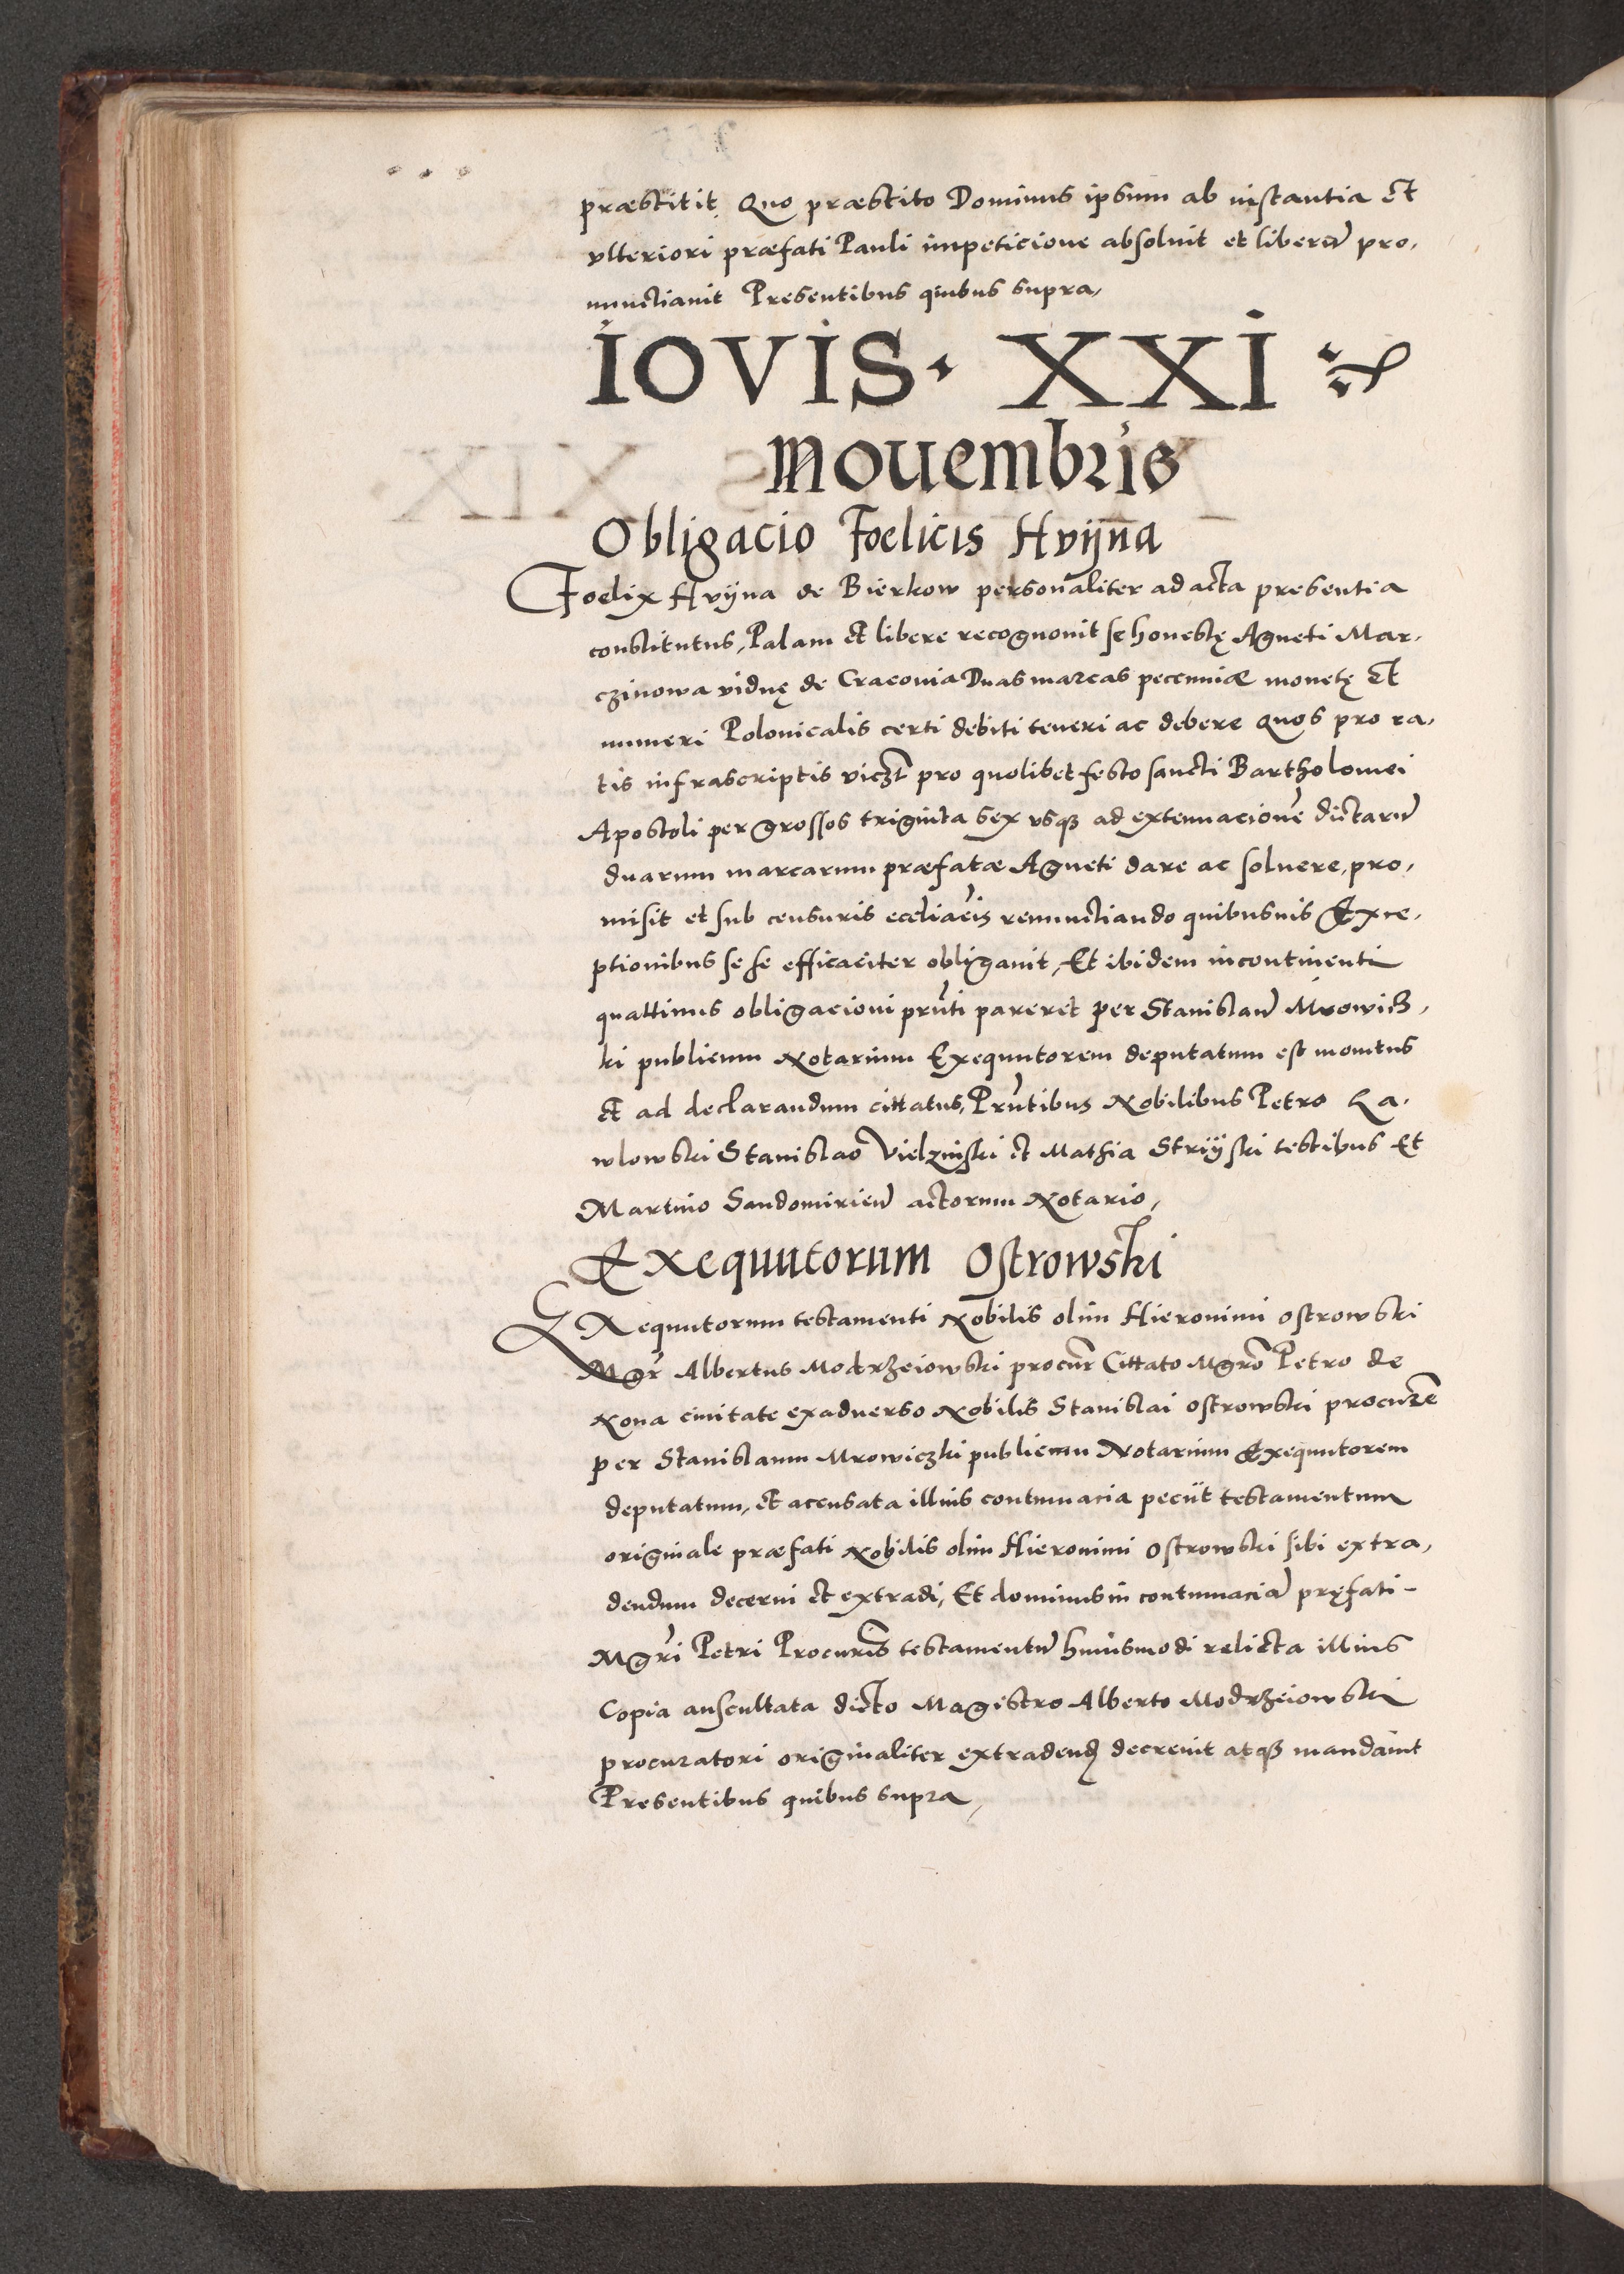 præstitit, Quo præstito Dominus ipsum ab instantia et
vlteriori præfati Pauli impeticione absoluit et liberū pro,
nunctiauit Presentibus quibus supra,
IOVIS · XXI
Nouembris
Obligacio Foelicis Hvÿna
Foelix Hvijna de Bierkow personaliter ad acta presentia
constitutus, Palam et libere recognouit se honestę Agneti Mar,
czinowa viduę de Cracouia Duas marcas pecunniæ monetę et
numeri Polonicalis certi debiti teneri ac debere Quos pro ra,
tis infrascriptis viczt pro quolibet festo sancti Bartholomei
Apostoli per grossos triginta sex vsq3 ad extenuacionē dictarū
duarum marcarum præfatæ Agneti dare ac soluere, pro,
misit et sub censuris eccliācis renunctiando quibusuis Exce,
ptionibus se se efficaciter obligauit, Et ibidem incontinenti
quattinus obligacioni prñti pareret per Stanislaū Mrowicz,
ki publicum Notarium Exequutorem deputatum est monitus
et ad declarandum cittatus, Prñtibus Nobilibus Petro La,
wlowski Stanislao Vielzinski et Mathia Strijski testibus Et
Martino Sandomirieñ actorum Notario,
Exequutorum Ostrowski
EXequutorum testamenti Nobilis olim Hieronimi Ostrowski
Mgr̃ Albertus Modrzeiowski procur̃ Cittato Mgrō Petro de
Noua ciuitate exaduerso Nobilis Stanislai Ostrowski procurē
per Stanislaum Mrowiczki publicum Notarium Exequutorem
deputatum, et accusata illius contumacia peciit testamentum
originale præfati Nobilis olim Hieronimi Ostrowski sibi extra,
dendum decerni et extradi, Et dominus in contumaciā pręfati -
Mgr̃i Petri Procurīs testamentū huiusmodi relicta illius
Copia auscultata dicto Magistro Alberto Modrzeiowski
procuratori originaliter extradendȝ decreuit atq3 mandauit
Presentibus quibus supra,